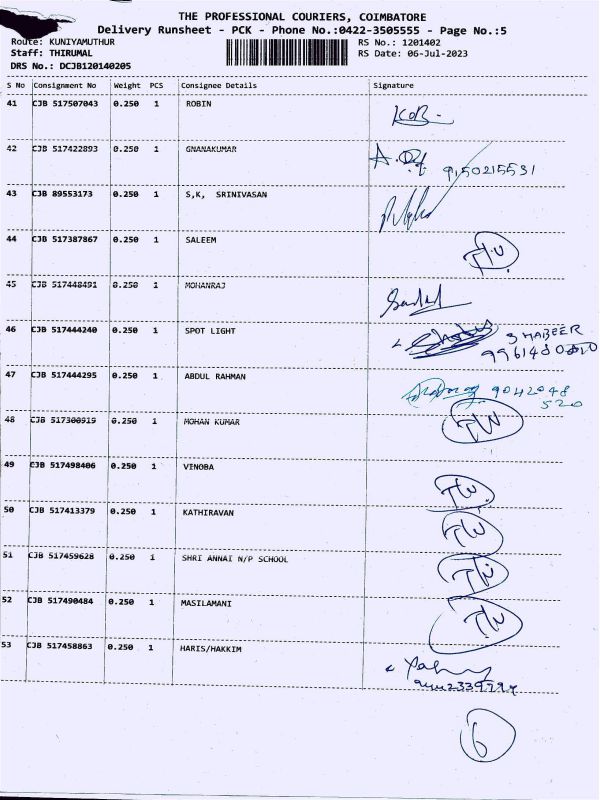 THE PROFESSIONAL COURIERS, COIMBATORE
Delivery Runsheet - PCK - Phone No.:0422-3505555 - Page No.:5
Route: KUNIYAMUTHUR RS No.: 1201402
Staff: THIRUMAL RS Date: 06-Jul-2023
DRS No.: DCJB120140205
S No Consignment No Weight PCS Consignee Details Signature
41 CJB 517507043 0.250 1 ROBIN
42 CJB 517422893 0.250 1 GNANAKUMAR
9150215531
43 CJB 89553173 0.250 1 S,K, SRINIVASAN
44 CJB 517387867 0.250 1 SALEEM
45 CJB 517448491 0.250 1 MOHANRAJ
46 CJB 517444240 0.250 1 SPOT LIGHT SHABEER
47 CJB 517444295 0.250 1 ABDUL RAHMAN
9042048
520
48 CJB 517300919 0.250 1 MOHAN KUMAR
49 CJB 517498406 0.250 1 VINOBA
50 CJB 517413379 0.250 1 KATHIRAVAN
51 CJB 517459628 0.250 1 SHRI ANNAI N/P SCHOOL
52 CJB 517490484 0.250 1 MASILAMANI
53 CJB 517458863 0.250 1 HARIS/HAKKIM
6